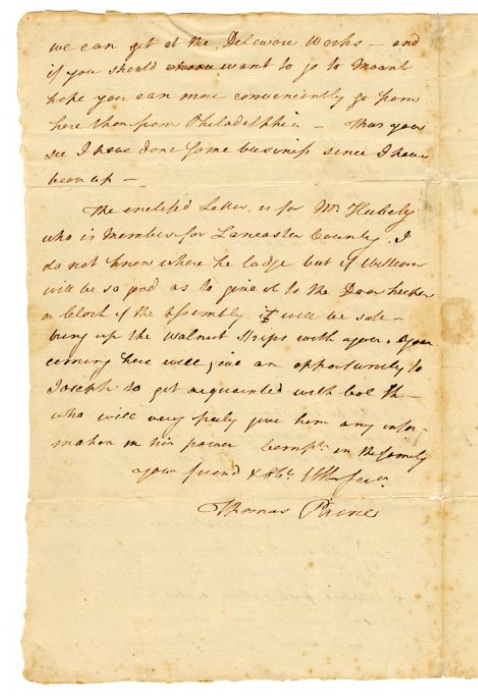 we can get at the Deleware Works — and
if you should want to go to Mount
hope you can more conveniently go from
here than from Philadelphia — Thus you
see I have done some business since I have
been up —
The enclosed Letter is for Mr Hubely
who is Member for Lancaster County. I
do not know where he lodge but if William
will be so good as to give it to the Door keeper
or Clerk of the Assembly it will be safe —
bring up the walnut strips with you. Your
coming here will give an opportunity to
Joseph to get acquainted with Col
who will very freely give him any infor-
mation in his power in the family
your friend &
Thomas Paine